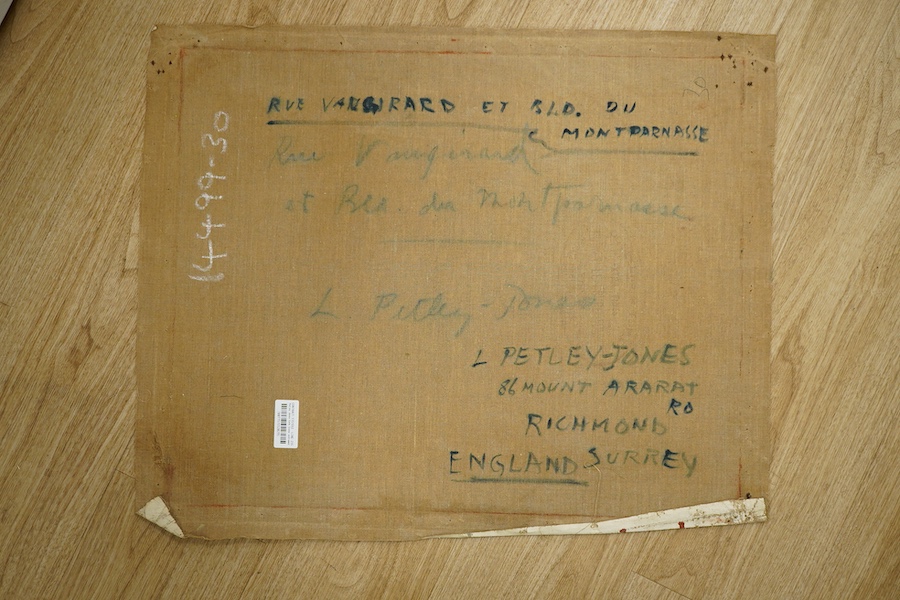 RUE VANGIRARD ET BLD. DU
MONTPARNASSE
Rue Vaugirard
et Bld. du Montparnasse
L Petley-Jones
L PETLEY-JONES
86 MOUNT ARARAT
RD
RICHMOND
ENGLAND SURREY
14-4-99-30